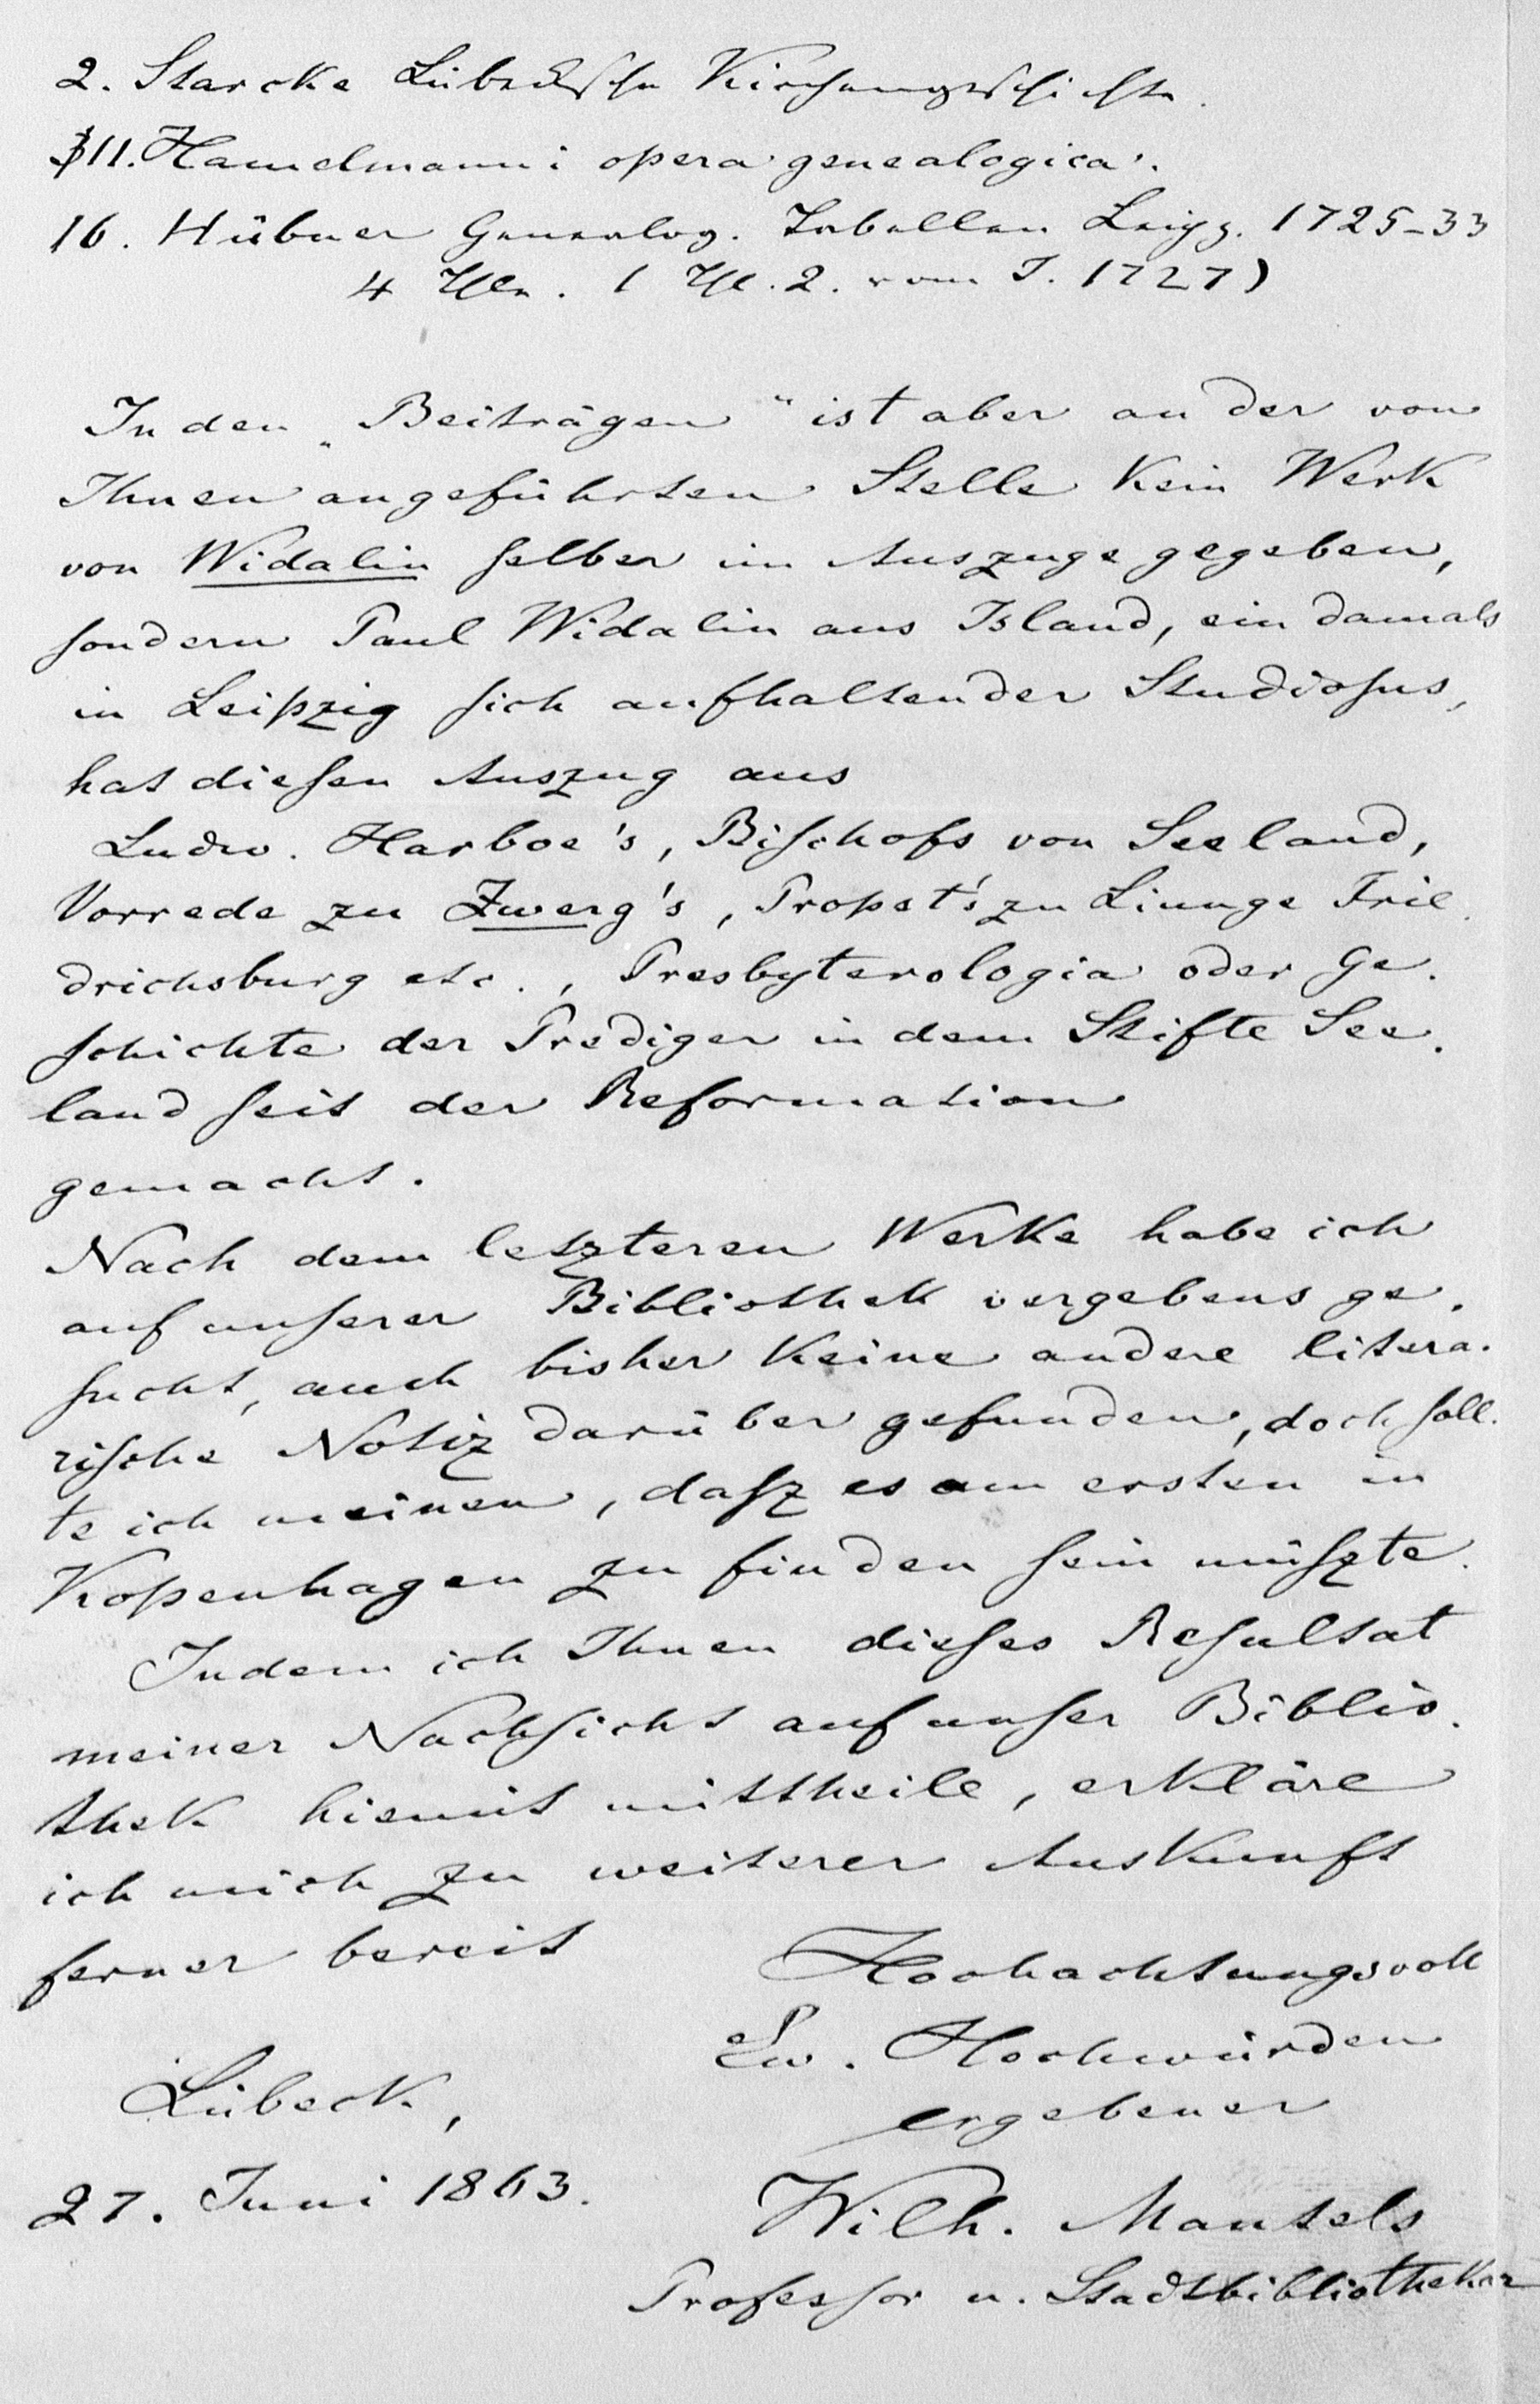 2. Starcke Lübecksche Kirchengeschichte.
11. Hamelmanni opera genealogica.
16. Hübner Genealog. Tabellen Leipz. 1725-33
4 Thle. ( Thl. 2. vom J. 1727)
In den „Beiträgen“ ist aber an der von
Ihnen angeführten Stelle kein Werk
von Widalin selber im Auszuge gegeben,
sondern Paul Widalin aus Island, ein damals
in Leipzig sich aufhaltender Studiosus,
hat diesen Auszug aus
Ludw. Harboe's, Bischofs von Seeland,
Vorrede zu Zwerg's, Propst's zu Liunge Frie-
drichsburg etc., Presbyterologia oder Ge-
schichte der Prediger in dem Stifte See-
land seit der Reformation
gemacht.
Nach dem letzteren Werke habe ich
auf unserer Bibliothek vergebens ge-
sucht, auch bisher keine andere litera-
rische Notiz darüber gefunden, doch soll-
te ich meinen, dasz es am ersten in
Kopenhagen zu finden sein müszte.
Indem ich Ihnen dieses Resultat
meiner Nachsicht auf unser Biblio-
thek hiemit mittheile, erkläre
ich mich zu weiterer Auskunft
ferner bereit
Hochachtungsvoll
Ew. Hochwürden
ergebener
Lübeck,
27. Juni 1863.
Wilh. Mantels
Professor u. Stadtbibliothekar